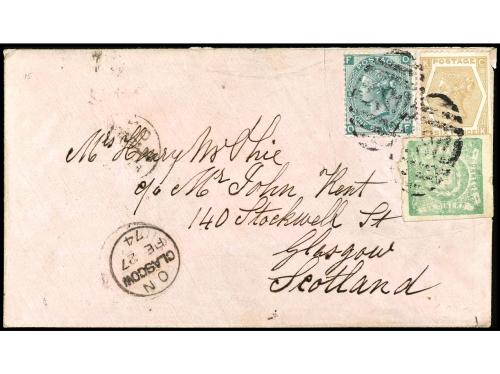 POSTAGE
Mrs Henry McPhie
c/o Mr John Kent
140 Stockwell St
Glasgow
Scotland
GLASGOW
FE 27
74